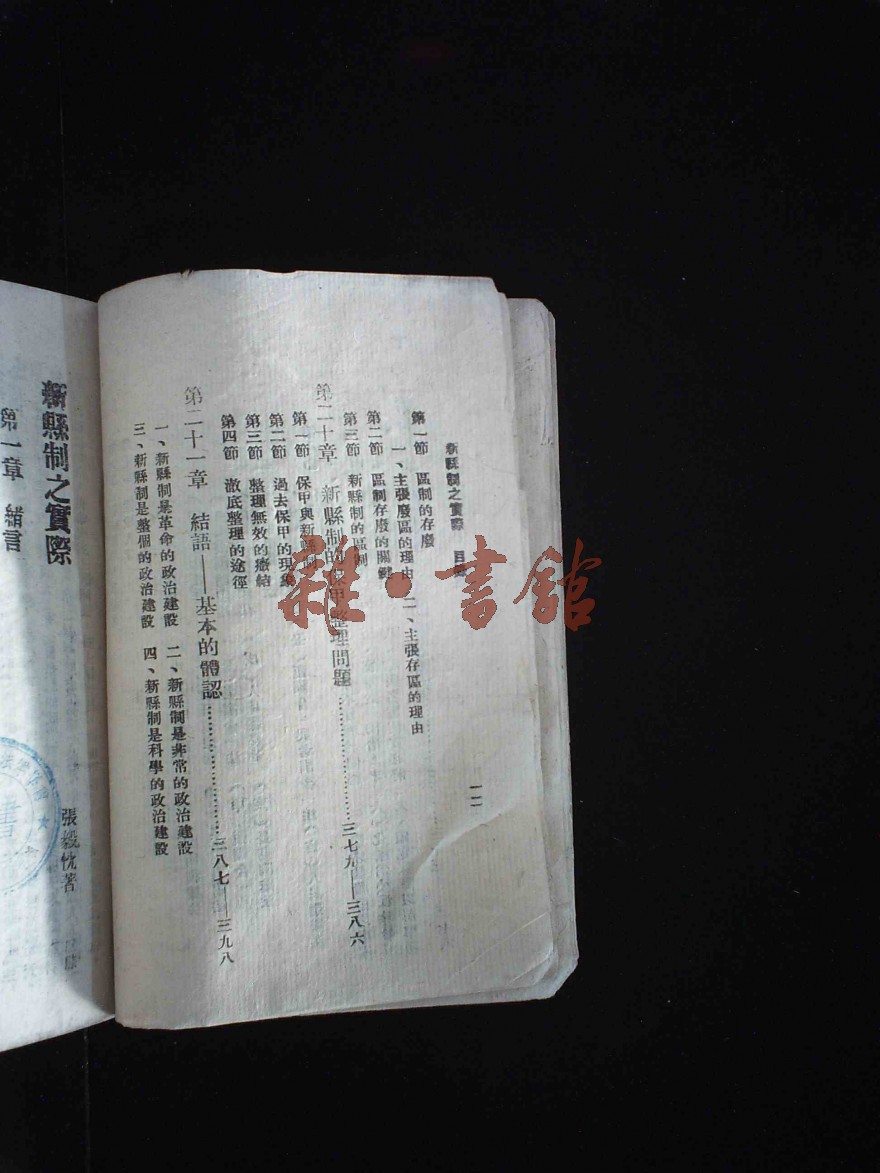 新縣制之實際 目錄
一二
第一節 區制的存廢
一、主張廢區的理由 二、主張存區的理由
第二節 區制存廢的關鍵
第三節 新縣制的區制
第二十章 新縣制的保甲整理問題……三七九——三八六
第一節 保甲與新縣制
第二節 過去保甲的現象
第三節 整理無效的癥結
第四節 澈底整理的途徑
第二十一章 結語——基本的體認……三八七——三九八
一、新縣制是革命的政治建設 二、新縣制是非常的政治建設
三、新縣制是整個的政治建設 四、新縣制是科學的政治建設
新縣制之實際
張毅忱著
第一章 緒言
雜·書館